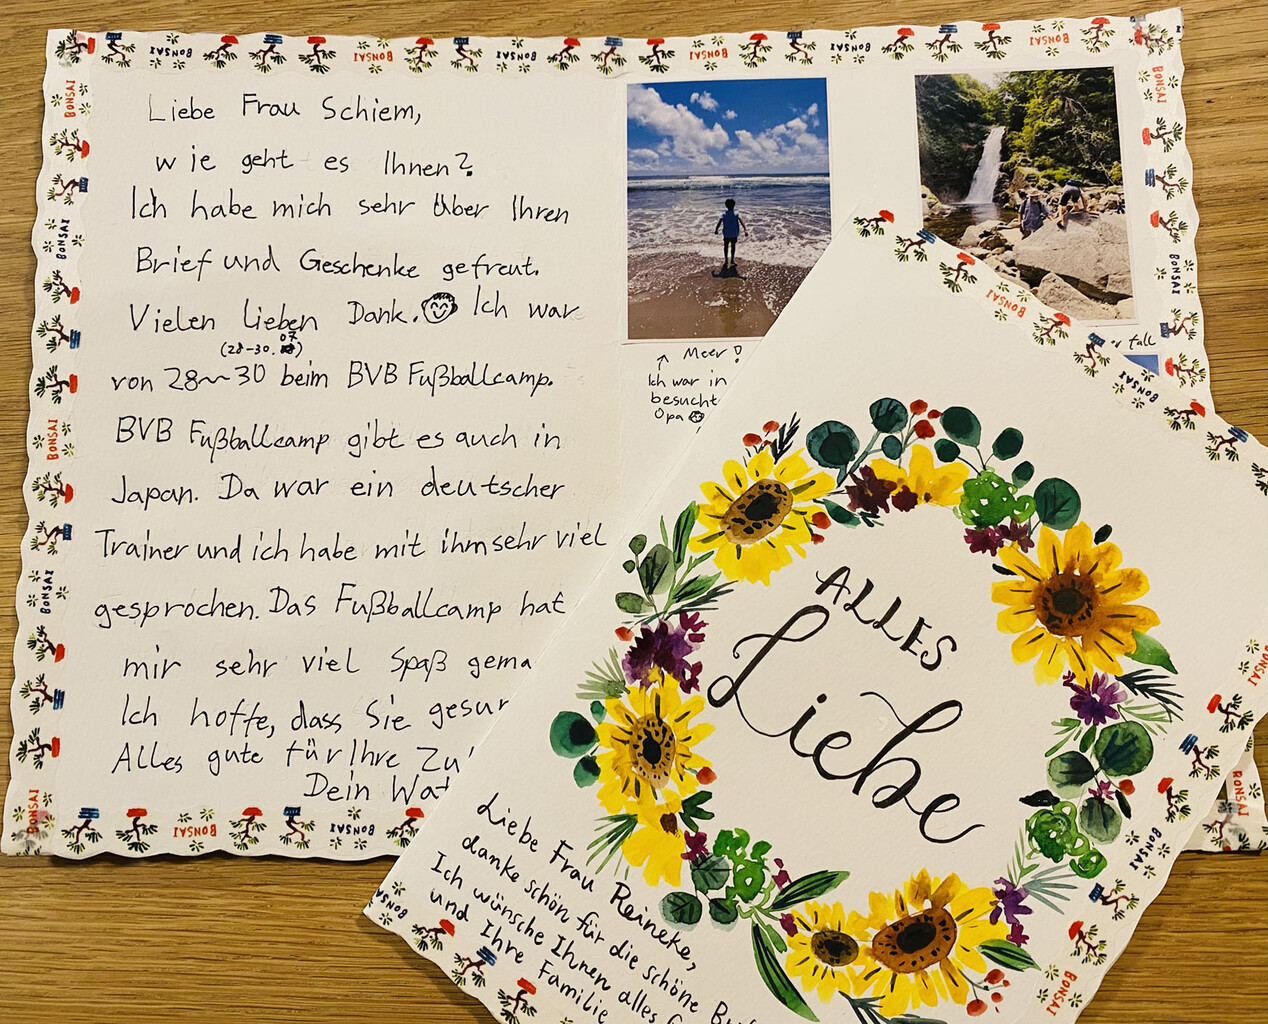 Liebe Frau Schiem,
wie geht es Ihnen?
Ich habe mich sehr über Ihren
Brief und Geschenke gefreut.
Vielen lieben Dank. Ich war
(28-30. 07)
von 28~30 beim BVB Fußballcamp.
BVB Fußballcamp gibt es auch in
Japan. Da war ein deutscher
Trainer und ich habe mit ihm sehr viel
gesprochen. Das Fußballcamp hat
mir sehr viel Spaß gema
Ich hoffe, dass Sie gesun
Alles gute für Ihre Zu
Dein Wat
↑ Meer!
Ich war in
besucht
Opa
fall
ALLES
Liebe
Liebe Frau Reineke,
danke schön für die schöne
Ich wünsche Ihnen alles
und Ihre Familie
BONSAI